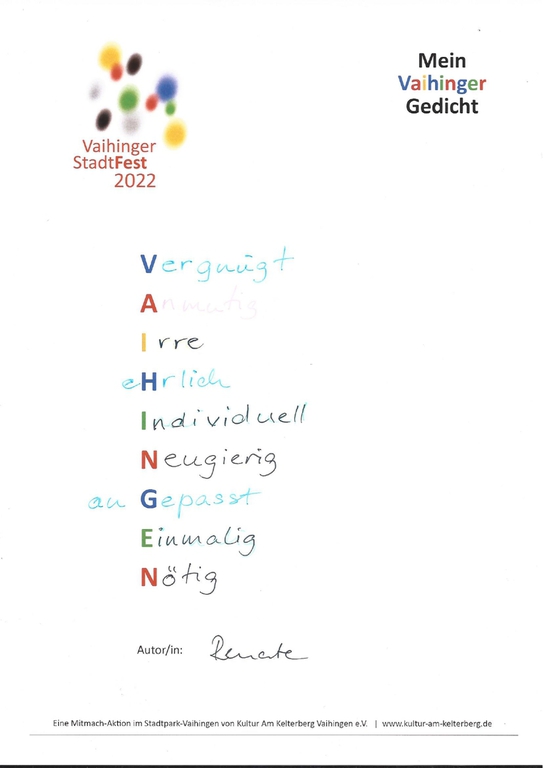 Mein
Vaihinger
Gedicht
Vaihinger
StadtFest
2022
Vergnügt
Anmutig
Irre
eHrlich
Individuell
Neugierig
an Gepasst
Einmalig
Nötig
Autor/in: Renate
Eine Mitmach-Aktion im Stadtpark-Vaihingen von Kultur Am Kelterberg Vaihingen e.V. | www.kultur-am-kelterberg.de